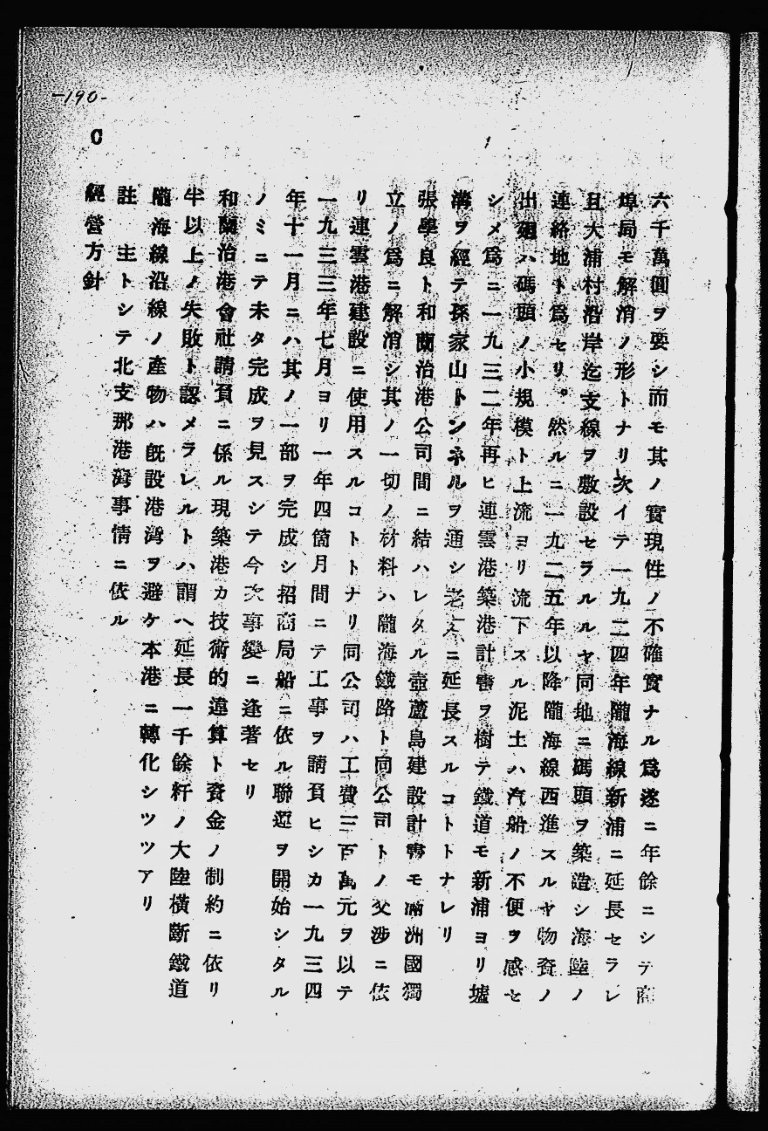 -190-
六千萬圓ヲ要シ而モ其ノ實現性ノ不確實ナル爲遂ニ年餘ニシテ商
埠局モ解消ノ形トナリ次イテ一九二四年隴海線新浦ニ延長セラレ
且大浦村沿岸迄支線ヲ敷設セラルルヤ同地ニ碼頭ヲ築造シ海陸ノ
連絡地ト爲セリ。然ルニ一九二五年以降隴海線西進スルヤ物資ノ
出𢌞ハ碼頭ノ小規模ト上流ヨリ流下スル泥土ハ汽船ノ不便ヲ感セ
シメ爲ニ一九三二年再ヒ連雲港築港計畫ヲ樹テ鐵道モ新浦ヨリ墟
溝ヲ經テ孫家山トンネルヲ通シ老窰ニ延長スルコトトナレリ
張學良ト和蘭治港公司間ニ結ハレタル壺蘆島建設計畫モ滿洲國獨
立ノ爲ニ解消シ其ノ一切ノ材料ハ隴海鐵路ト同公司トノ交渉ニ依
リ連雲港建設ニ使用スルコトトナリ同公司ハ工費三百萬元ヲ以テ
一九三三年七月ヨリ一年四箇月間ニテ工事ヲ請負ヒシカ一九三四
年十一月ニハ其ノ一部ヲ完成シ招商局船ニ依ル聯運ヲ開始シタル
ノミニテ未タ完成ヲ見スシテ今次事變ニ逢著セリ
和蘭治港會社請負ニ係ル現築港カ技術的違算ト資金ノ制約ニ依リ
半以上ノ失敗ト認メラレルトハ謂ヘ延長一千餘粁ノ大陸横斷鐵道
隴海線沿線ノ產物ハ既設港灣ヲ避ケ本港ニ轉化シツツアリ
註 主トシテ北支那港灣事情ニ依ル
C 經營方針